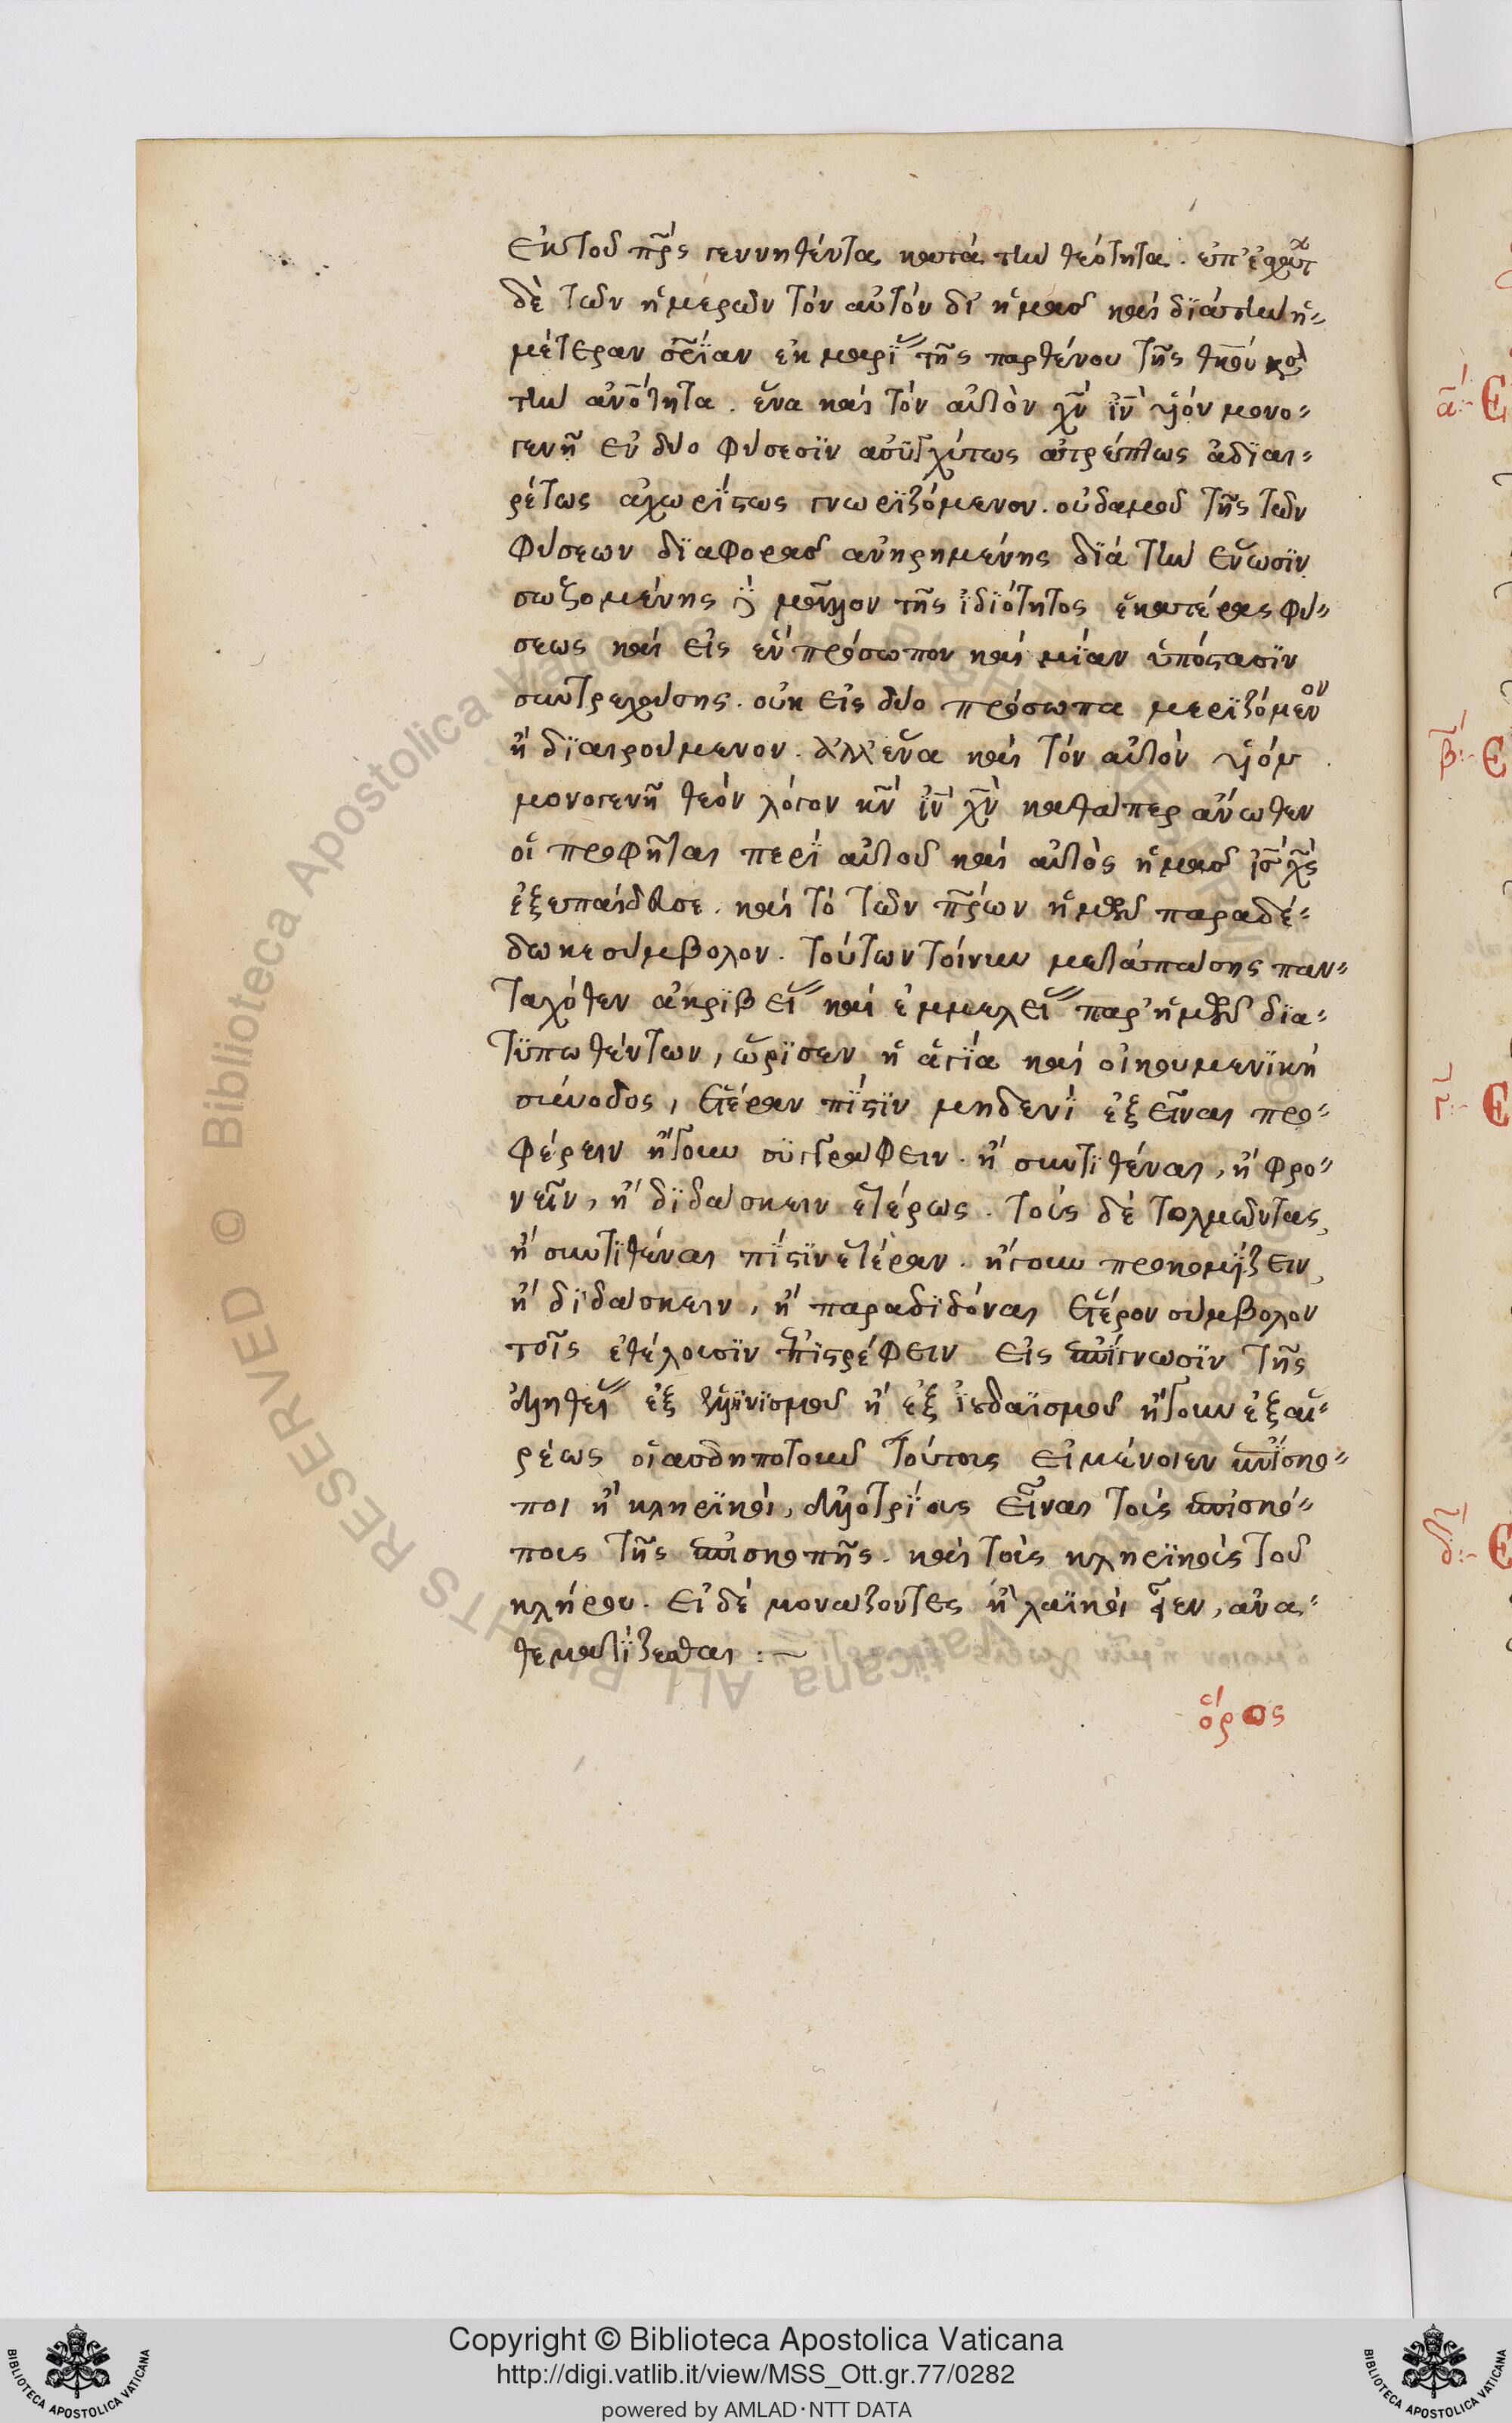 ἐκ τοῦ πρ̅ς γεννηθέντα κατὰ τὴν θεότητα. ἐπ' ἐσχάτ
δὲ τῶν ἡμερῶν τὸν αὐτὸν δι' ἡμᾶς καὶ διὰ τὴν ἡ-
μετέραν σρ̅ίαν ἐκ μαρίας τῆς παρθένου τῆς θκ̅ου κατὰ
τὴν ἀνό̅τητα. ἕνα καὶ τὸν αὐτὸν χν̅ ιν̅ υἱόν μονο-
γενῆ ἐν δύο φύσεσϊν ἀσϋγχύτως ἀτρέπτως ἀδϊαι-
ρέτως ἀχωρίστως γνωρϊζόμενον. οὐδαμοῦ τῆς τῶν
φύσεων δϊαφορᾶς ἀνῃρημένης δϊὰ τὴν ἕνωσϊν
σωζομένης δὲ μᾶλλον τῆς ἰδϊότητος ἑκατέρας φύ-
σεως καὶ εἰς ἓν πρόσωπον καὶ μίαν ὑπόστασϊν
συντρεχούσης. οὐκ εἰς δύο πρόσωπα μερϊζόμενον
ἢ δϊαιρούμενον. ἀλλ' ἕνα καὶ τὸν αὐτὸν υἱόν
μονογενῆ θεὸν λόγον κν̅ ιν̅ χν̅ καθάπερ ἄνωθεν
οἱ προφῆται περὶ αὐτοῦ καὶ αὐτὸς ἡμᾶς ις̅ χς̅
ἐξεπαίδευσε. καὶ τὸ τῶν πρ̅ων ἡμῶν παραδέ-
δωκε σύμβολον. τούτων τοίνυν μετὰ πάσης παν-
ταχόθεν ἀκρϊβείας καὶ ἐμμελείας παρ' ἡμῶν δϊα-
τϋπωθέντων, ὥρϊσεν ἡ ἁγία καὶ οἰκουμενϊκὴ
σύνοδος, ἑτέραν πίστϊν μηδενὶ ἐξεῖναι προ-
φέρειν ἤγουν σϋγγράφειν. ἢ συντϊθέναι, ἢ φρο-
νεῖν, ἢ δϊδάσκειν ἑτέρως. τοὺς δὲ τολμῶντας,
ἢ συντϊθέναι πίστϊν ἑτέραν. ἤγουν προκομίζειν,
ἢ δϊδάσκειν, ἢ παραδϊδόναι ἕτερον σύμβολον
τοῖς ἐθέλουσϊν ἐπιστρέφειν εἰς ἐπίγνωσϊν τῆς
ἀληθείας ἐξ ἑλληνϊσμοῦ ἢ ἐξ ἰουδαϊσμοῦ ἤγουν ἐξ αἱ-
ρέως οἱασδηποτοῦν τούτους εἰ μένοιεν ἐπίσκο-
ποι ἢ κληρϊκοὶ, ἀλλοτρίους εἶναι τοὺς ἐπισκό-
πους τῆς ἐπισκοπῆς. καὶ τοὺς κληρϊκοὺς τοῦ
κλήρου. εἰ δὲ μονάζοντες ἢ λαϊκοὶ εἶεν, ἀνα-
θεματίζεσθαι :~
ὅρος